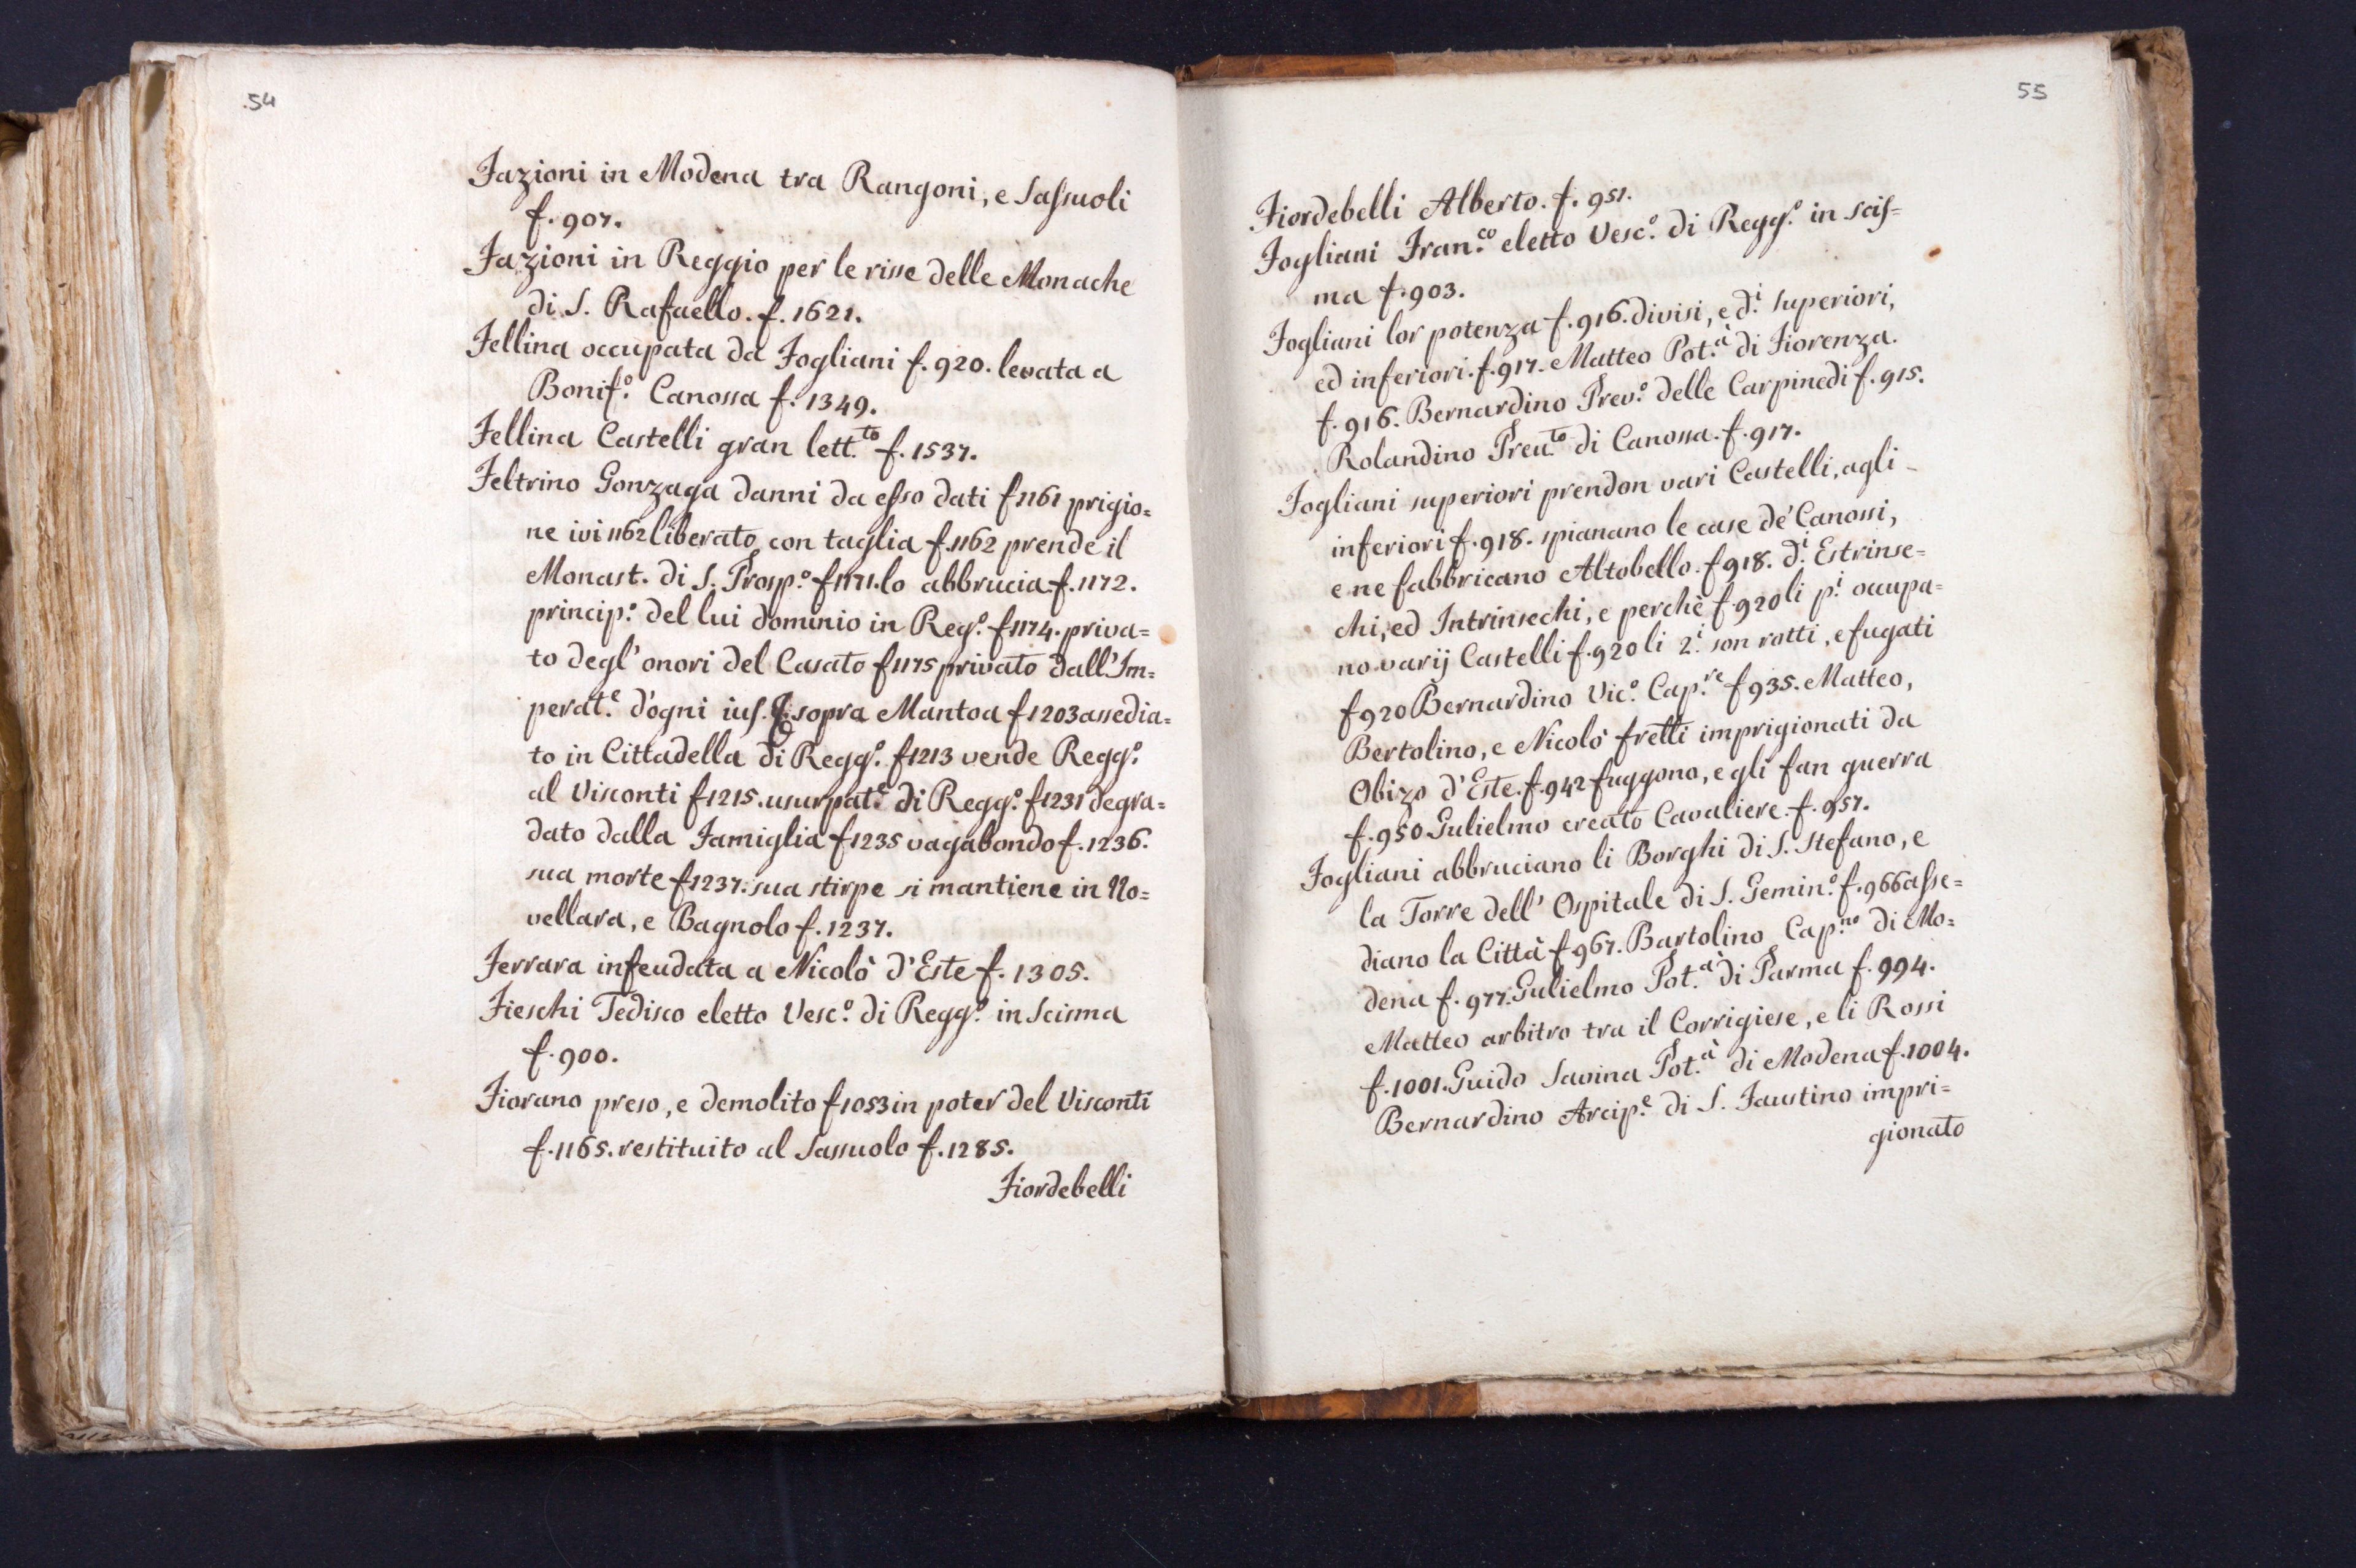 54
Fazioni in Modena tra Rangoni, e Sassuoli
f. 907.
Fazioni in Reggio per le risse delle Monache
di S. Rafaello. f. 1621.
Fellina occupata da Fogliani f. 920. levata a
Bonif.º Canossa f. 1349.
Fellina Castelli gran lett.to f. 1537.
Feltrino Gonzaga danni da esso dati f1161 prigio=
ne ivi 1162 liberato con taglia f.1162 prende il
Monast. di S. Prosp.º f1171. lo abbrucia. f. 1172.
princip.º del lui dominio in Reg.º f1174. priva=
to degl' onori del Casato f1175 privato dall' Im=
perat.e d'ogni ius. sopra Mantoa f1203 assedia=
to in Cittadella di Regg.º f1213 vende Regg.º
al Visconti f1215. usurpat.e di Regg.º f1231 degra=
dato dalla Famiglia f1235 vagabondo f. 1236.
sua morte f1237. sua stirpe si mantiene in No=
vellara, e Bagnolo f. 1237.
Ferrara infeudata a Nicolò d'Este f. 1305.
Fieschi Tedisco eletto Vesc.º di Regg.º in Scisma
f. 900.
Fiorano preso, e demolito f1053 in poter del Visconti
f. 1165. restituito al Sassuolo f. 1285.
Fiordebelli
55
Fiordebelli Alberto. f. 951.
Fogliani Fran.co eletto Vesc.º di Regg.º in scis=
ma f. 903.
Fogliani lor potenza f. 916. divisi, e d.i superiori,
ed inferiori. f. 917. Matteo Pot.à di Fiorenza.
f. 916. Bernardino Prev.º delle Carpinedi f. 915.
Rolandino Preu.to di Canossa. f. 917.
Fogliani superiori prendon vari Castelli, agli
inferiori f. 918. spianano le case de' Canossi,
e ne fabbricano Altobello. f918. d.i Estrinse=
chi, ed Intrinsechi, e perchè f. 920 li p.i occupa=
no varij Castelli f. 920 li 2.i son rotti, e fugati
f920 Bernardino Vic.º Cap.re f935. Matteo,
Bertolino, e Nicolò fretti imprigionati da
Obizo d'Este. f. 942 fuggono, e gli fan guerra
f. 950 Gulielmo creato Cavaliere. f. 957.
Fogliani abbruciano li Borghi di S. Stefano, e
la Torre dell' Ospitale di S. Gemin.º f. 966 asse=
diano la Città f. 967. Bartolino Cap.no di Mo=
dena f. 977. Gulielmo Pot.à di Parma f. 994.
Matteo arbitro tra il Corrigiese, e li Rossi
f. 1001. Guido Savina Pot.à di Modena f. 1004.
Bernardino Arcip.e di S. Faustino impri=
gionato